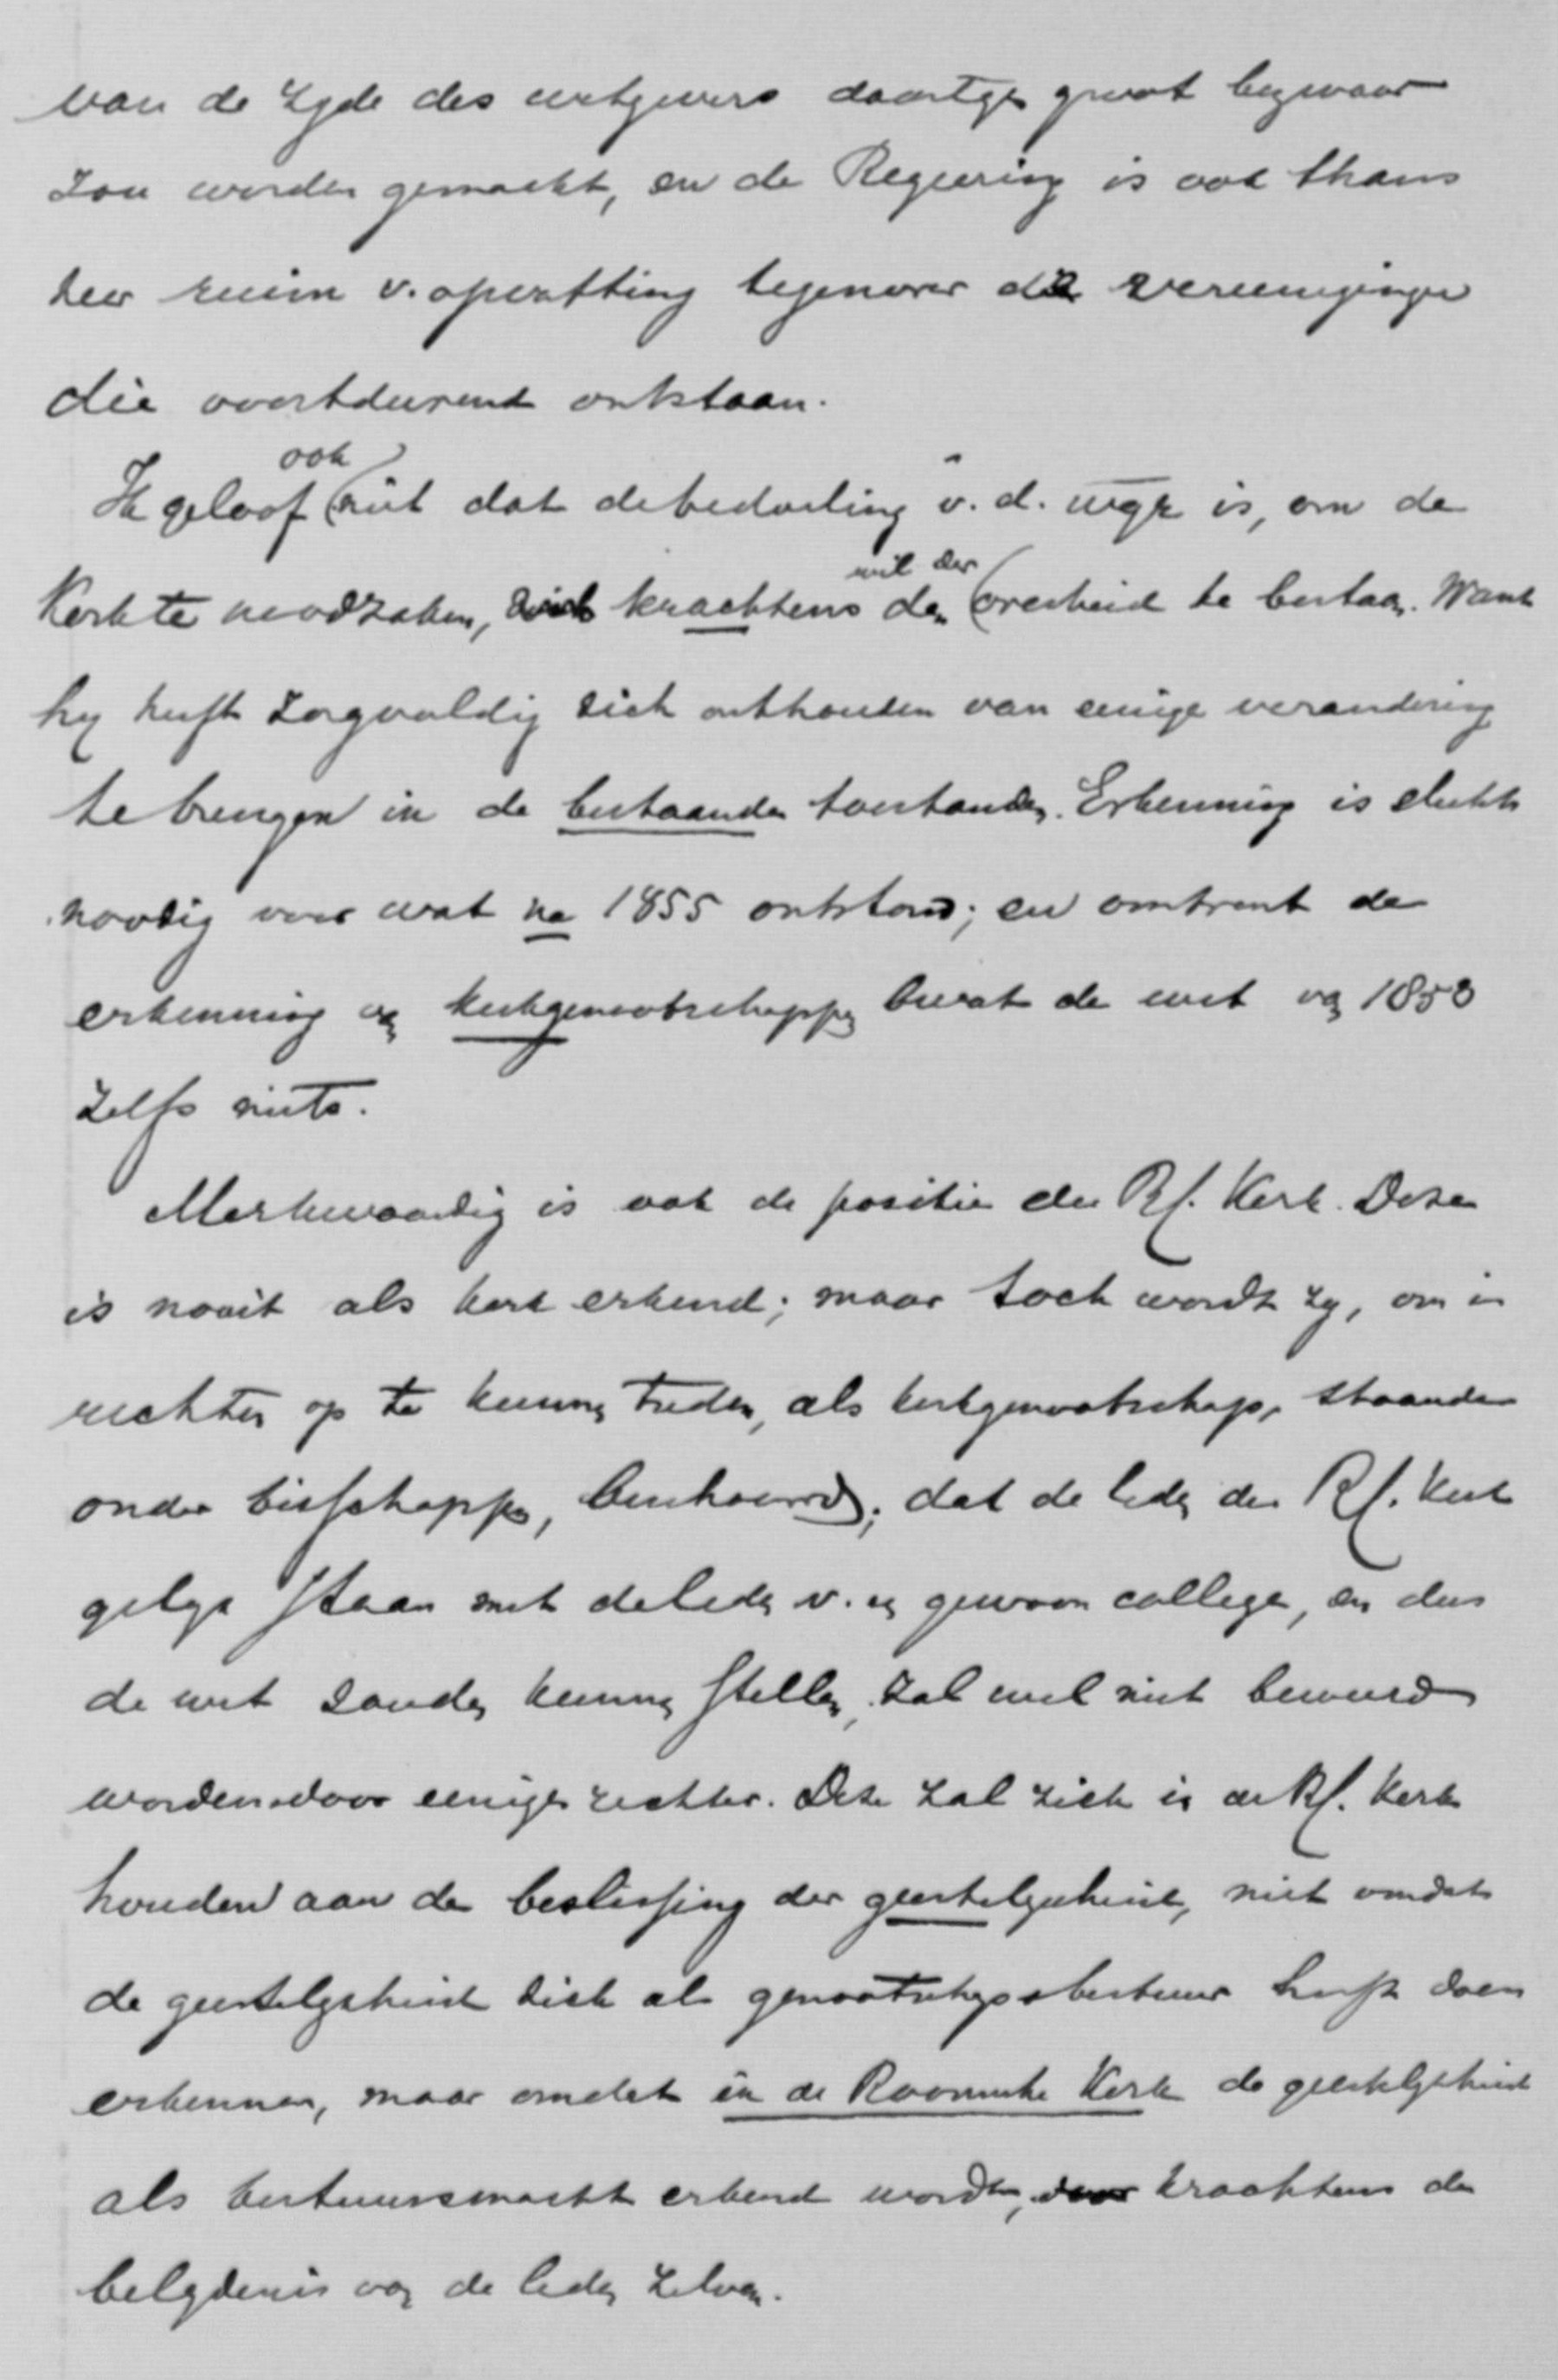 van de zyde des wetgevers daartegen groot bezwaar
zou worden gemaakt, en de Regeering is ook thans
zeer ruim v. opvatting tegenover de vereenigingen
die voortdurend ontstaan.
Ik geloof ook niet dat de bedoeling v. d. wgr is, om de
Kerk te noodzaken, krachtens den wil der overheid te bestaan. Want
hy heeft zorgvuldig zich onthouden van eenige verandering
te brengen in de bestaande toestanden. Erkenning is slechts
noodig voor wat na 1855 ontstond; en omtrent de
erkenning van kerkgenootschappen bevat de wet van 1853
zelfs niets.
Merkwaardig is ook de positie der Rf. Kerk. Deze
is nooit als kerk erkend; maar toch wordt zy, om in
rechten op te kunnen treden, als kerkgenootschap, staande
onder bisschoppen, beschouwd; dat de leden der Rf. Kerk
gelyk staan met de leden v. een gewoon college, en dus
de wet zouden kunnen stellen, zal wel niet beweerd
worden door eenigen rechter. Deze zal zich in de Rf. Kerk
houden aan de beslissing der geestelykheid, niet omdat
de geestelykheid zich als genootschapsbestuur heeft doen
erkennen, maar omdat in de Roomsche Kerk de geestelykheid
als bestuursmacht erkend wordt, krachtens de
belydenis van de leden zelven.